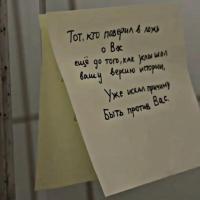 Тот, кто поверил в ложь
о Вас
ещё до того, как услышал
вашу версию истории,
Уже искал причину
Быть против Вас.